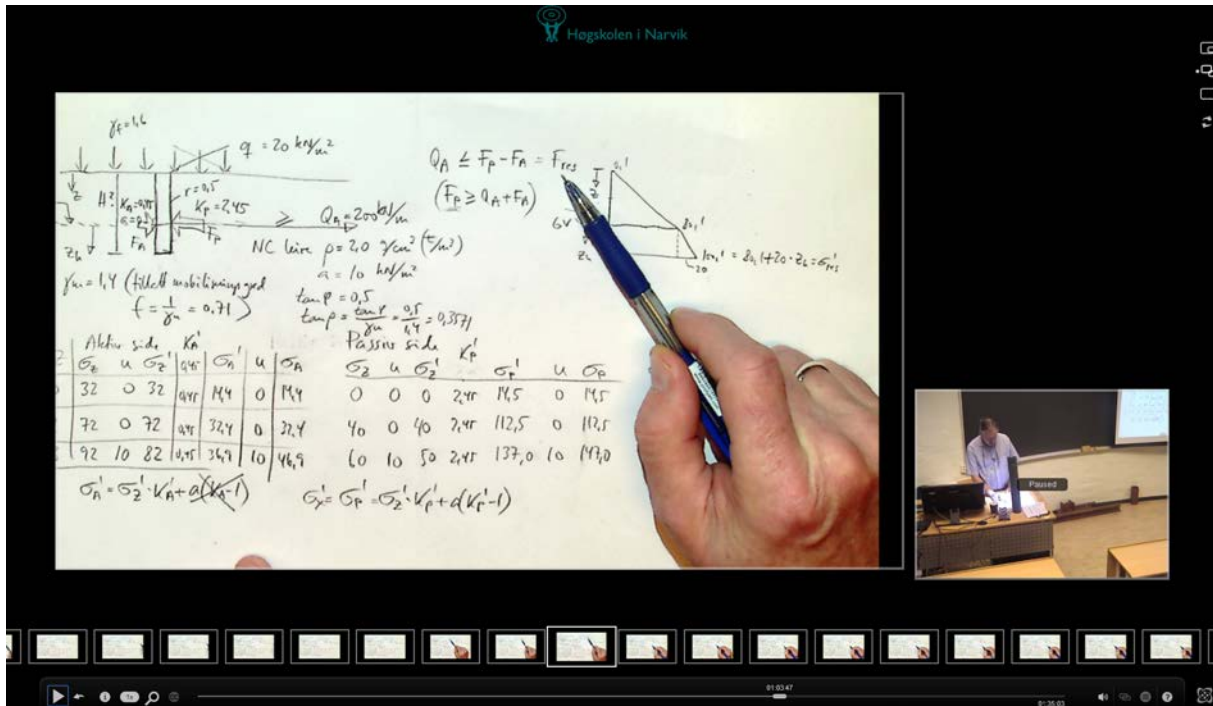 Høgskolen i Narvik
γf=1,6
q = 20 kN/m²
z
H?
r=0,5
Kp=2,45
FA
Fp
≥ QA=200 kN/m
zh
NC leire ρ=2,0 g/cm³ (t/m³)
a = 10 kN/m²
γm=1,4 (tillatt mobiliseringsgrad
f = 1/γm = 0,71)
tanφ = 0,5
tanρ = tanφ/γm = 0,5/1,4 = 0,3571
QA ≤ Fp - FA = Fres
(Fp ≥ QA + FA)
0,1'
z
GV
zh
80,1'
= 80,1+20·zh = σ'res
20
Aktiv side KA'
σz u σz' 0,45 σA' u σA
32 0 32 0,45 14,4 0 14,4
72 0 72 0,45 32,4 0 32,4
92 10 82 0,45 36,9 10 46,9
σA' = σz'·KA' + a(KA-1)
Passiv side
σz u σz' Kp' σp' u σp
0 0 0 2,45 14,5 0 14,5
40 0 40 2,45 112,5 0 112,5
60 10 50 2,45 137,0 10 147,0
σx' = σp' = σz'·Kp' + a(Kp'-1)
Paused
1x
01:03:47
01:35:03